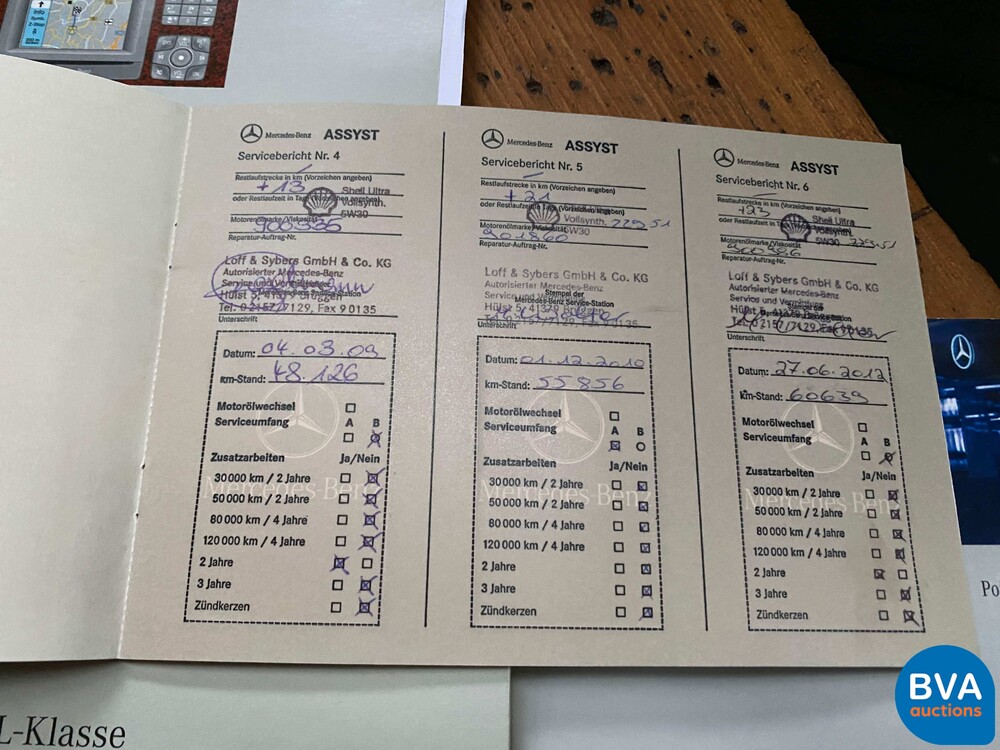 Mercedes-Benz ASSYST
Servicebericht Nr. 4
Restlaufstrecke in km (Vorzeichen angeben)
+ 13
Shell Ultra
oder Restlaufzeit in Tagen
Vollsynth.
5W30
Motorenölmarke/Viskosität
900386
Reparatur-Auftrag-Nr.
Loff & Sybers GmbH & Co. KG
Autorisierter Mercedes-Benz
Service und Vermittlung
Hülst 5, 41379 Brüggen
Tel. 0 2157/7129, Fax 9 0135
Unterschrift
Datum: 04.03.09
km-Stand: 48.126
Motorölwechsel
Serviceumfang A B
Zusatzarbeiten Ja/Nein
30 000 km / 2 Jahre
50 000 km / 2 Jahre
80 000 km / 4 Jahre
120 000 km / 4 Jahre
2 Jahre
3 Jahre
Zündkerzen
Mercedes-Benz
Mercedes-Benz ASSYST
Servicebericht Nr. 5
Restlaufstrecke in km (Vorzeichen angeben)
+ 21
oder Restlaufzeit in Tagen
Vollsynth. 229 51
5W30
Motorenölmarke/Viskosität
901860
Reparatur-Auftrag-Nr.
Loff & Sybers GmbH & Co. KG
Autorisierter Mercedes-Benz
Stempel der
Mercedes-Benz Service-Station
Hülst 5, 41379 Brüggen
Unterschrift
Datum: 01.12.2010
km-Stand: 55856
Motorölwechsel
Serviceumfang A B
Zusatzarbeiten Ja/Nein
30 000 km / 2 Jahre
50 000 km / 2 Jahre
80 000 km / 4 Jahre
120 000 km / 4 Jahre
2 Jahre
3 Jahre
Zündkerzen
Mercedes-Benz
Mercedes-Benz ASSYST
Servicebericht Nr. 6
Restlaufstrecke in km (Vorzeichen angeben)
+23
Shell Ultra
oder Restlaufzeit in Tagen
Vollsynth.
5W30 229.51
Motorenölmarke/Viskosität
900386
Reparatur-Auftrag-Nr.
Loff & Sybers GmbH & Co. KG
Autorisierter Mercedes-Benz
Service und Vermittlung
Hülst 5, 41379 Brüggen
Tel. 0 2157/7129, Fax 9 0135
Unterschrift
Datum: 27.06.2012
km-Stand: 60639
Motorölwechsel
Serviceumfang A B
Zusatzarbeiten Ja/Nein
30 000 km / 2 Jahre
50 000 km / 2 Jahre
80 000 km / 4 Jahre
120 000 km / 4 Jahre
2 Jahre
3 Jahre
Zündkerzen
Mercedes-Benz
L-Klasse
Po
BVA
auctions